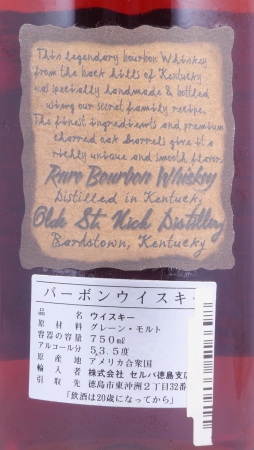 This legendary bourbon Whiskey
from the back hills of Kentucky
was specially handmade & bottled
using our secret family recipe.
The finest ingredients and premium
charred oak barrels give it a
richly unique and smooth flavor.
Rare Bourbon Whiskey
Distilled in Kentucky
Olde St. Nick Distillery
Bardstown, Kentucky
バーボンウイスキー
品名 ウイスキー
原材料 グレーン・モルト
容器の容量 750㎖
アルコール分 53.5度
原産地 アメリカ合衆国
輸入者 株式会社 セルバ徳島支店
引取先 徳島市東沖洲2丁目32番
「飲酒は20歳になってから」